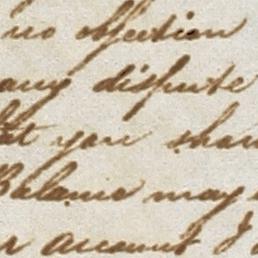 no objection
any dispute
that you shou
Balance may
r account I